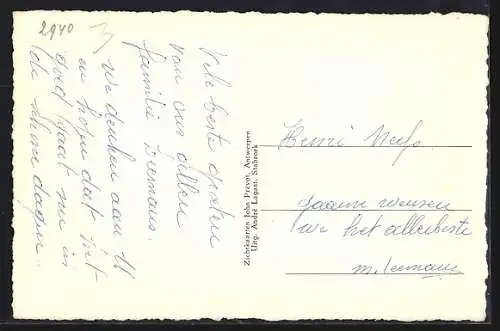 2940
Vele beste groeten
van ons allen
familie Leemans.
We denken aan U
en hopen dat het
goed gaat nu in
de schone dagen.
Zichtkaarten John Prevot, Antwerpen
Uitg. André Lagast, Stabroek
Henri
gaarn wensen
we het allerbeste
m. Leemans